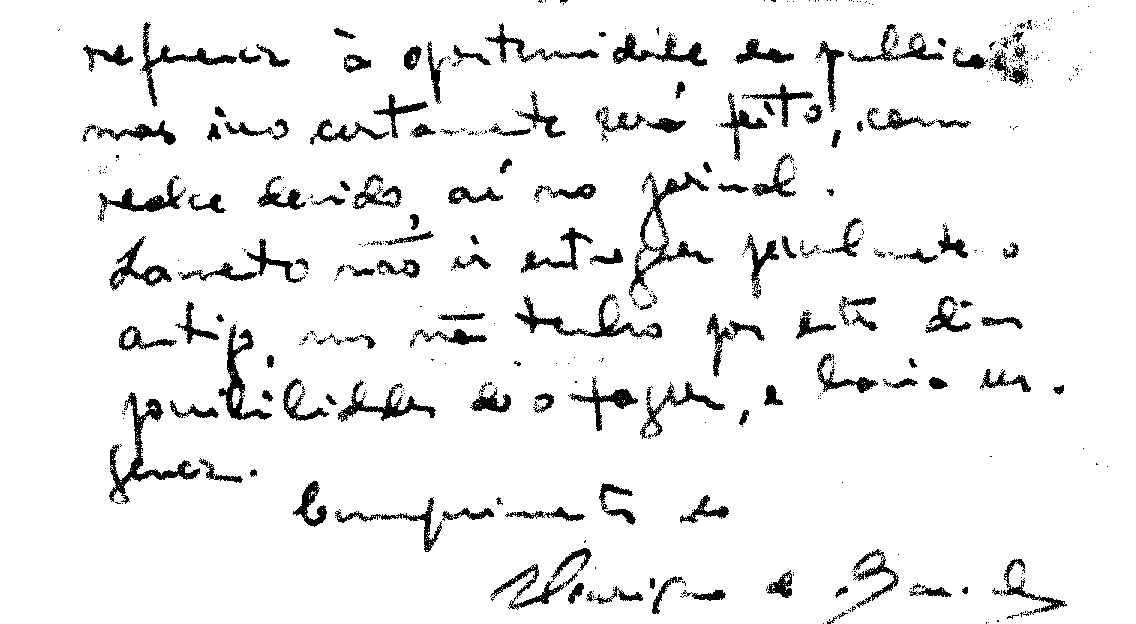 referência à oportunidade da publicação
mas isso certamente será feito, com
realce devido, aí no jornal.
Lamento não ir entregar pessoalmente o
artigo, mas não tenho por estes dias
possibilidades de o fazer, e havia ur-
gência.
Cumprimentos do
Henrique de